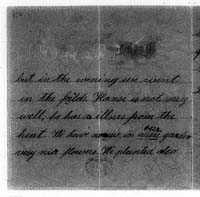 but in the evening we went
in the fields Hanse is not very
well; he has a illness from the
heat. We have now in our garden
very nice flowers. We planted also